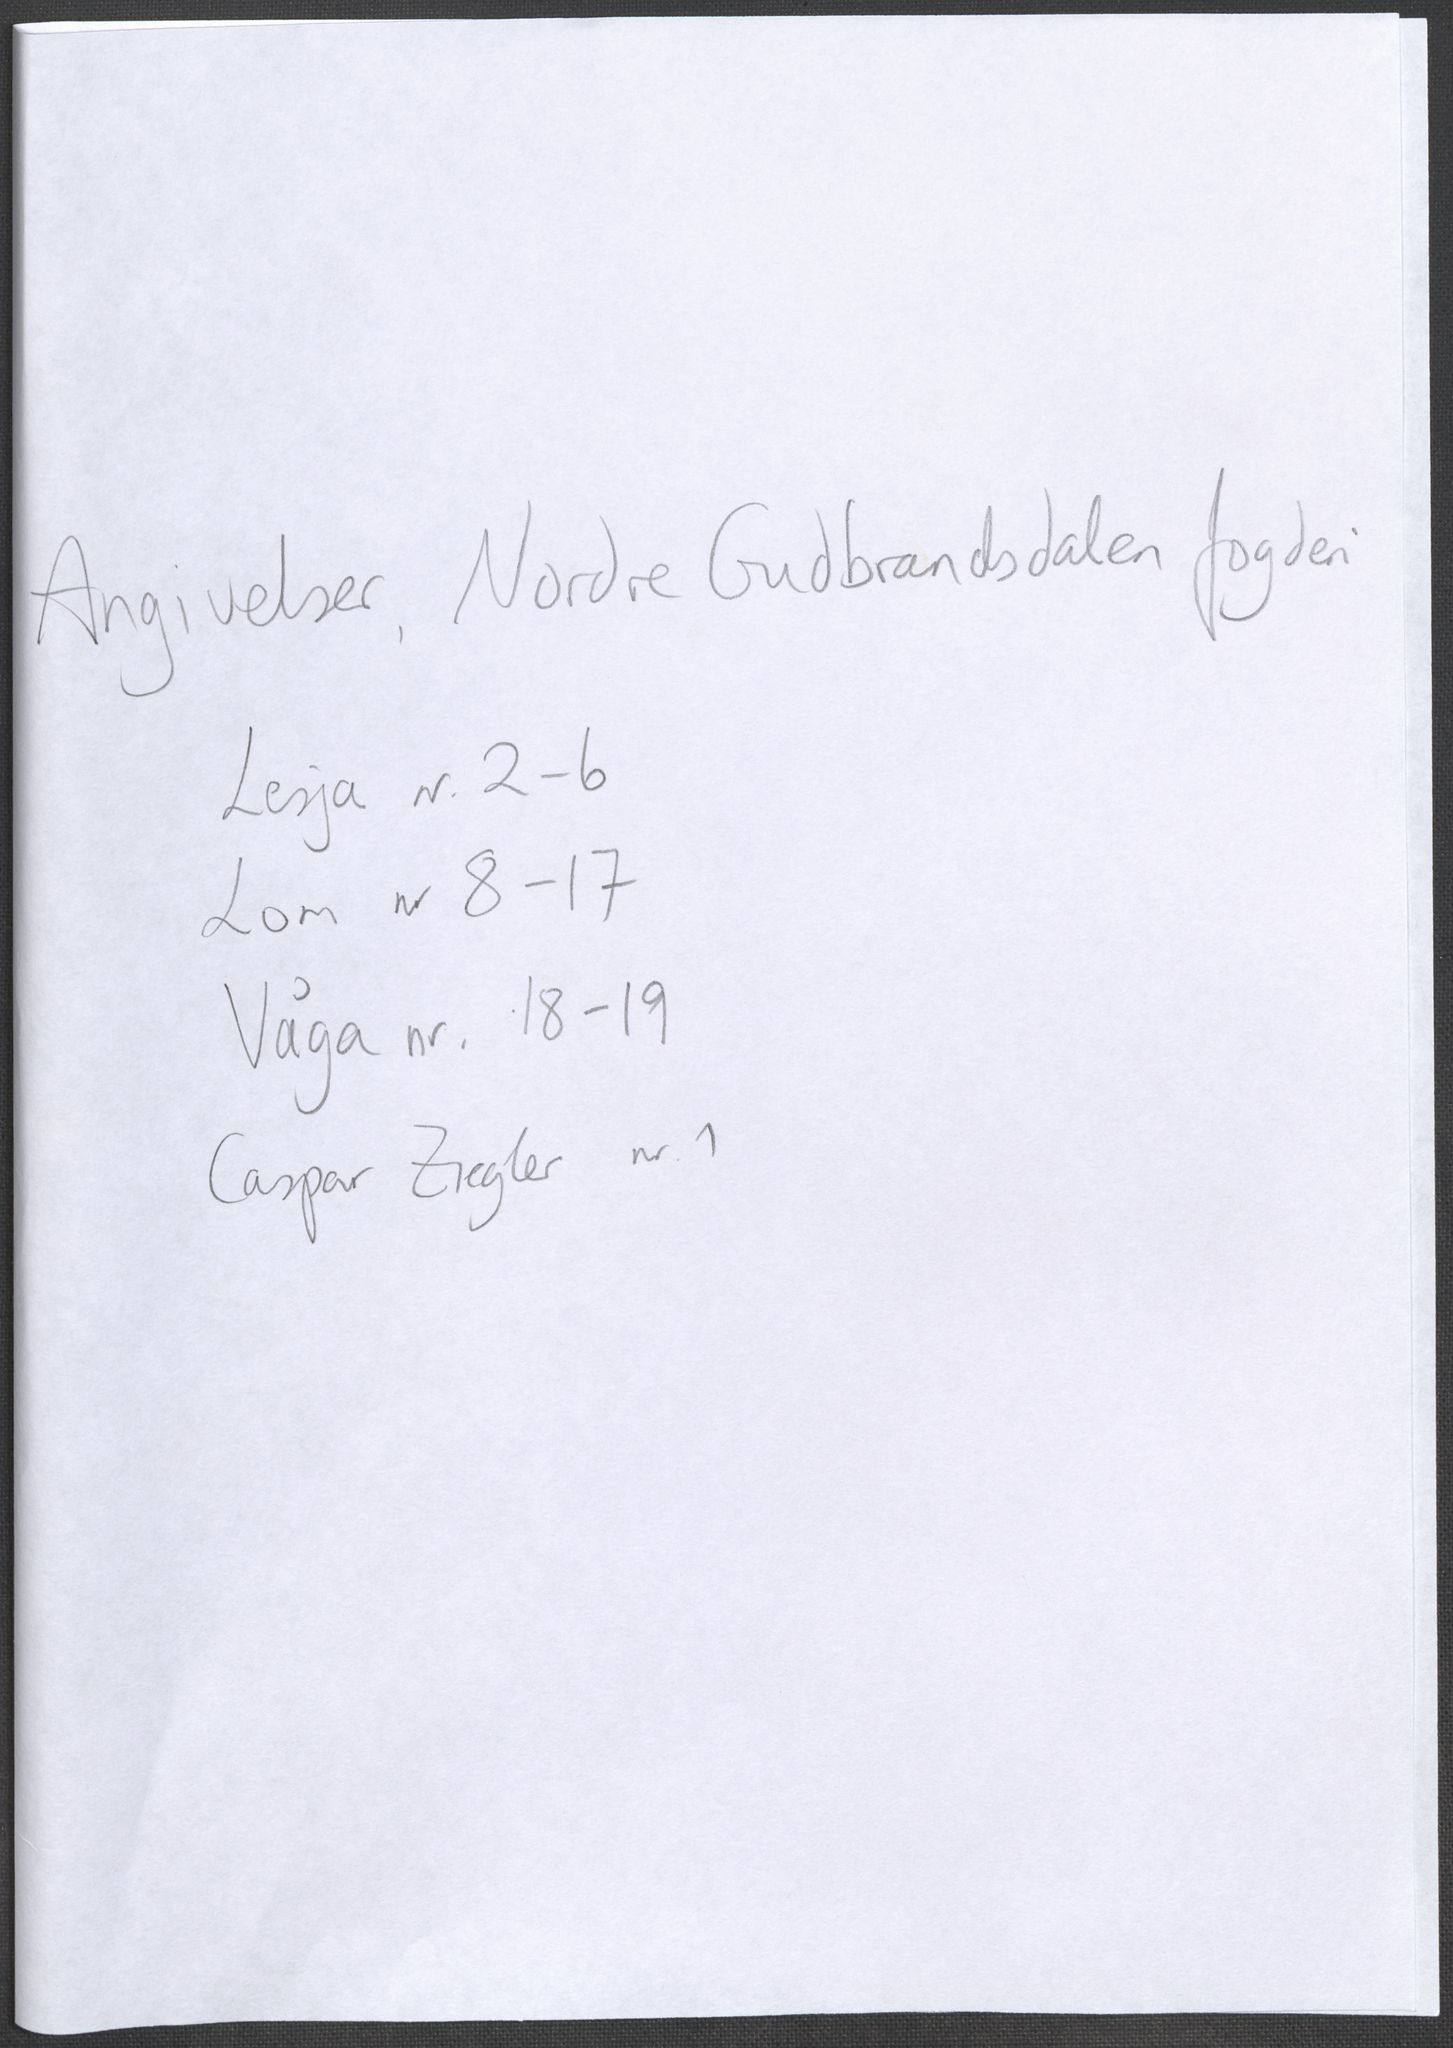 Angivelser, Nordre Gudbrandsdalen fogderi
Lesja nr. 2-6
Lom nr 8-17
Våga nr. 18-19
Caspar Ziegler nr. 1